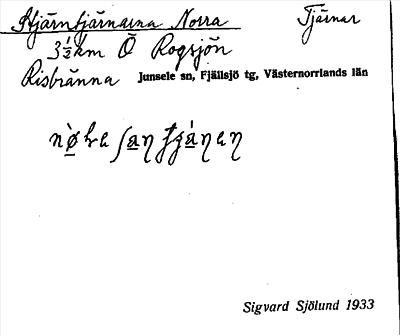 Stjärntjärnarna Norra Tjärnar
3½ km Ö Rogsjön
Risbränna Junsele sn, Fjällsjö tg, Västernorrlands län
Sigvard Sjölund 1933